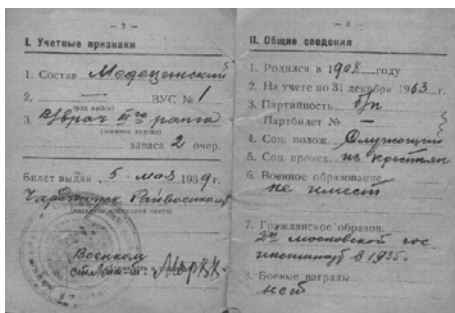 — 2 —
I. Учетные признаки
1. Состав Медецинский
2. — ВУС № 1
(род войск)
3. В/врач III го ранга
запаса 2 очер.
Билет выдан „5“ мая 1939 г.
Райвоенкомат
Военком
— 3 —
II. Общие сведения
1. Родился в 1908 году
2. На учете по 31 декабря 1963 г.
3. Партийность б/п
Партбилет № —
4. Соц. полож. Служащий
5. Соц. происх. из крестьян
6. Военное образование
не имеет
7. Гражданское образов.
2й Московской гос.
институт в 1935 г.
8. Боевые награды
нет